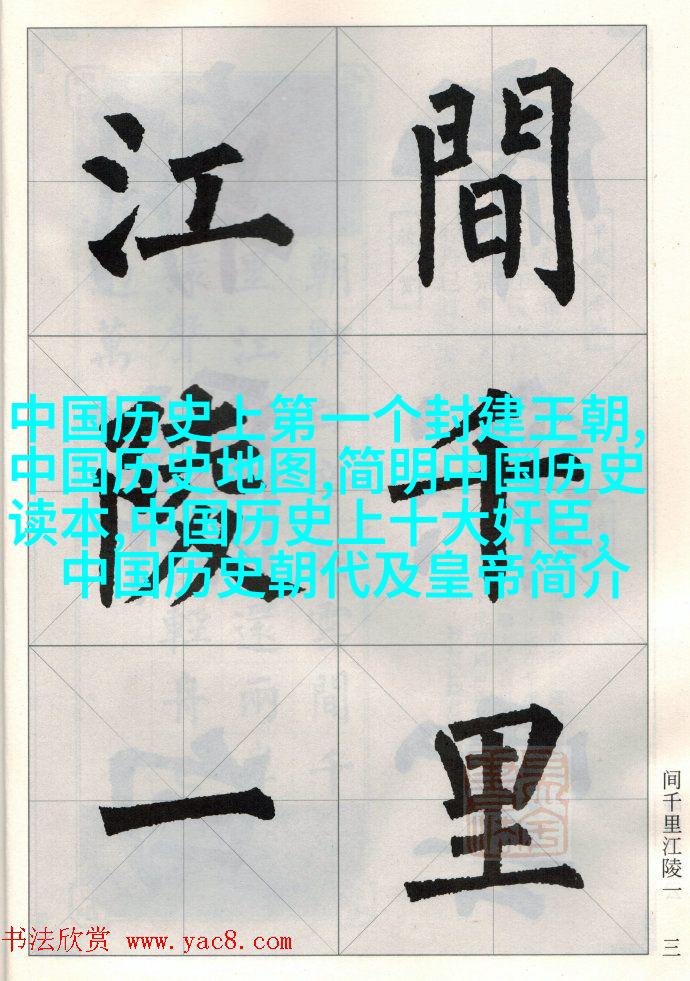 間千里
江陵一
中国历史上第一个封建王朝,
中国历史地图,简明中国历史
读本,中国历史上十大奸臣,
中国历史朝代及皇帝简介
间千里江陵一 三
书法欣赏 www.yac8.com